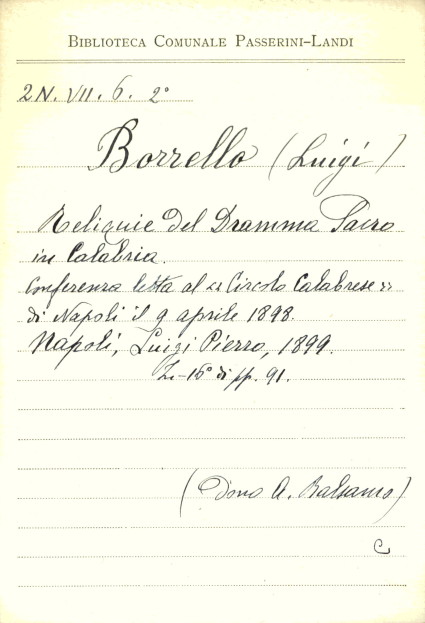 BIBLIOTECA COMUNALE PASSERINI-LANDI
2N. VII. 6. 2°
Borrello (Luigi)
Reliquie del Dramma Sacro
in Calabria.
Conferenza letta al « Circolo Calabrese »
di Napoli il 9 aprile 1898.
Napoli, Luigi Pierro, 1899.
In-16° di pp. 91.
(Dono A. Balsamo)
C